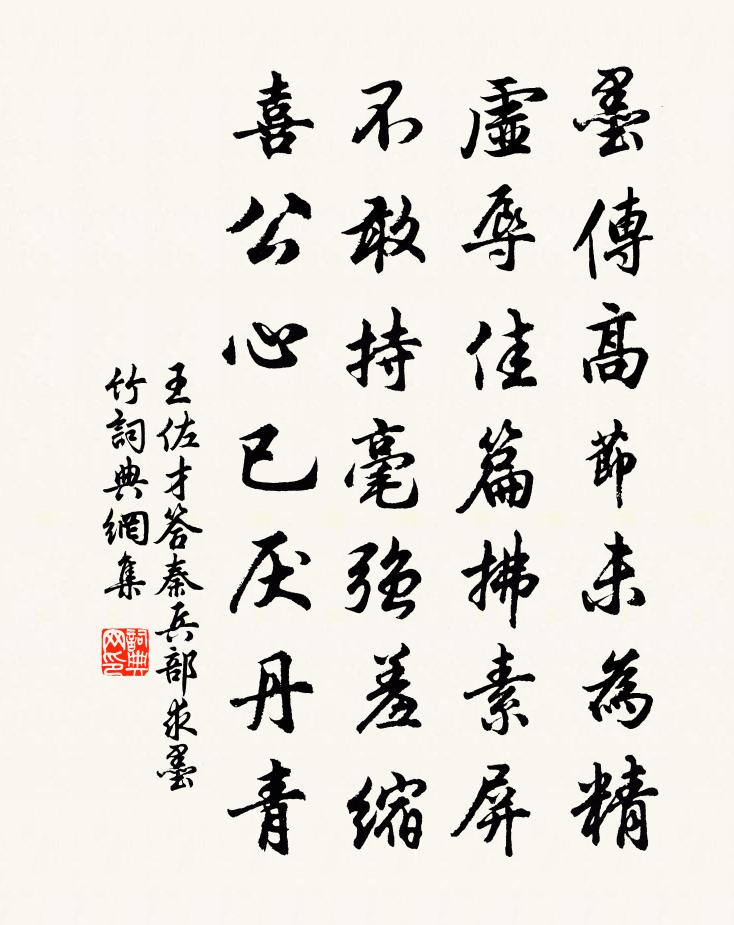 墨傳高節未為精
虛辱佳篇拂素屏
不敢持毫強羞縮
喜公心已厌丹青
王佐才答秦兵部求墨
竹詞典網集
詞典网印